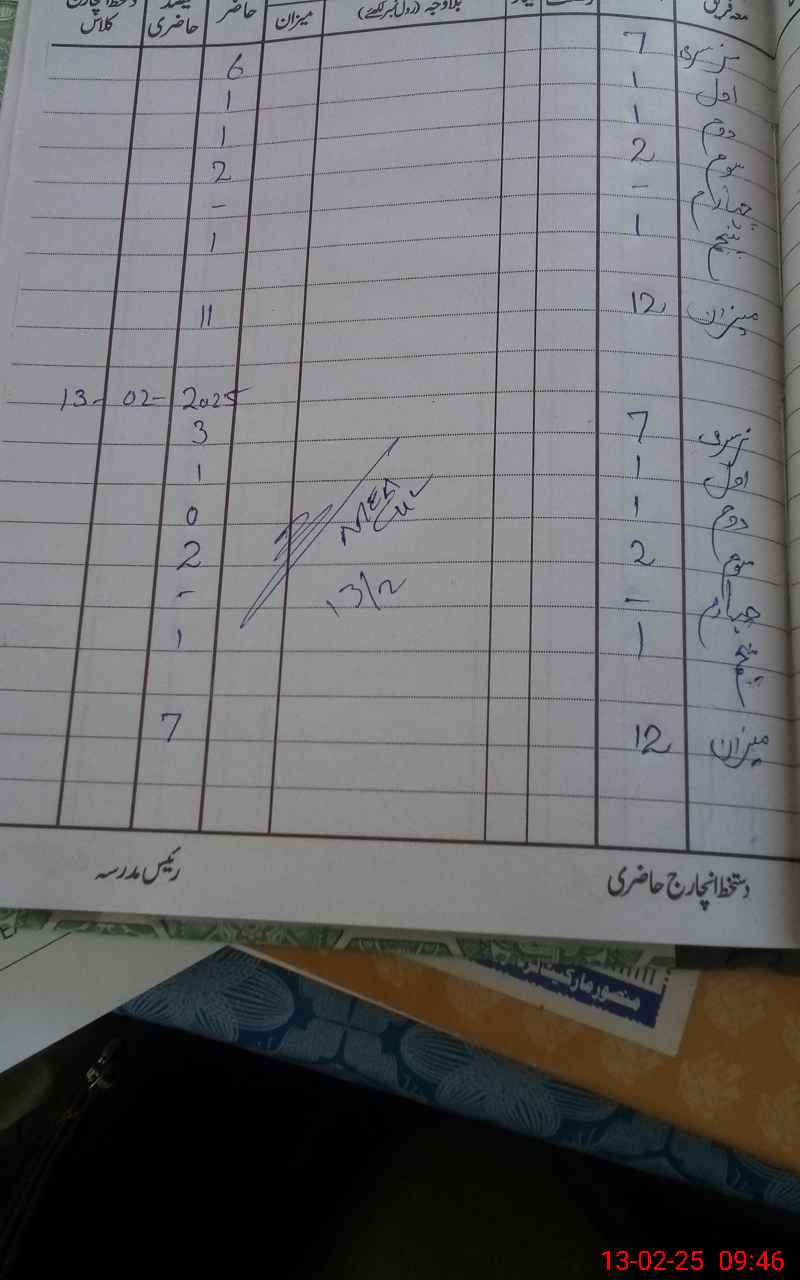 معہ فریق بلاوجہ (رول نمبر لکھئے) میزان حاضر فیصد حاضری دستخط انچارج کلاس
نرسری 7 6
اول 1 1
دوم 1 1
سوم 2 2
چہارم - -
پنجم 1 1
میزان 12 11
13-02-2025
نرسری 7 3
اول 1 1
دوم 1 0
سوم 2 2
چہارم - -
پنجم 1 1
13/2
میزان 12 7
دستخط انچارج حاضری رئیس مدرسہ
منصور مارکیٹ
13-02-25 09:46